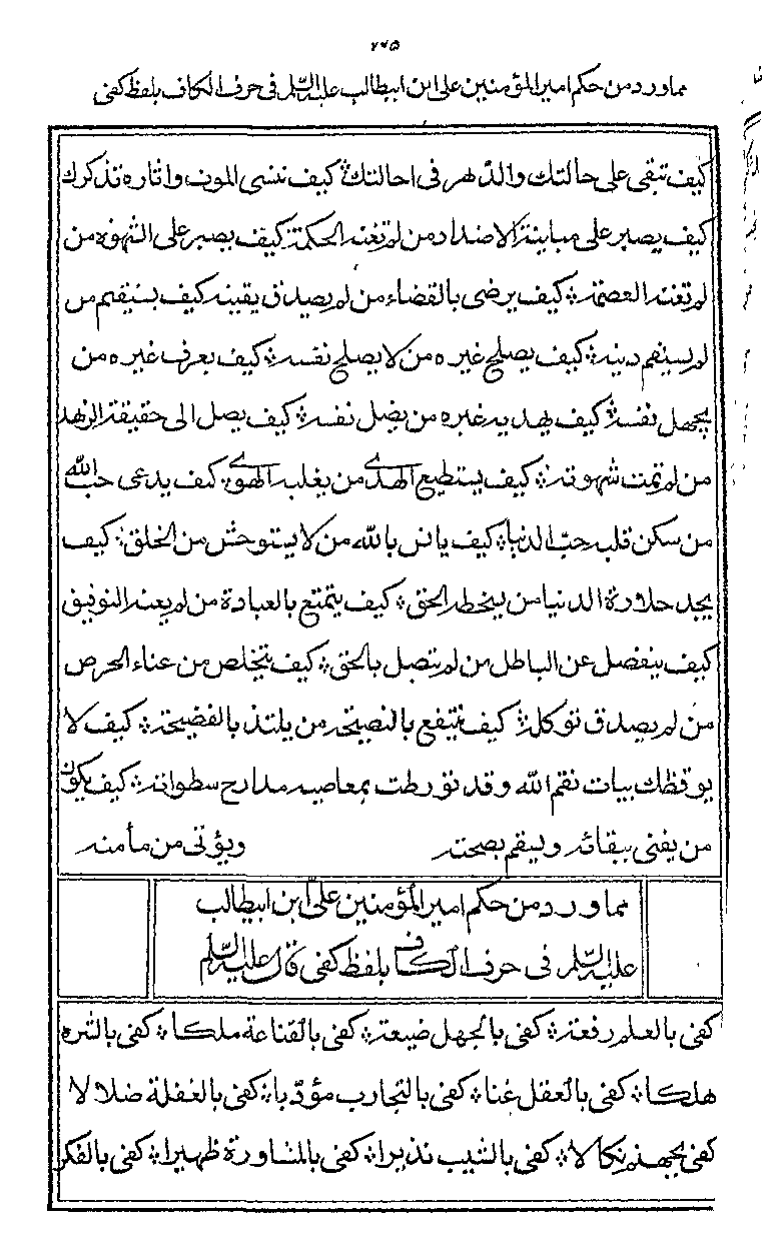 ٢٤٥
مما ورد من حكم امير المؤمنين على ابن ابيطالب عليه السلم فى حرف الكاف بلفظ كفى
كيف تبقى على حالتك والدهر فى احالتك كيف تنسى الموت واثاره تذكرك
كيف يصبر على مباينة الاضداد من لم تعنه الحكمة كيف يصبر على الشهوة من
لم تعنه العصمة كيف يرضى بالقضاء من لم يصدق يقينه كيف يستقيم من
لم يستقم دينه كيف يصلح غيره من لا يصلح نفسه كيف يعرف غيره من
يجهل نفسه كيف يهديه غيره من يضل نفسه كيف يصل الى حقيقة الزهد
من لم تمت شهوته كيف يستطيع الهدى من يغلبه الهوى كيف يدعى حب الله
من سكن قلبه حب الدنيا كيف يانس بالله من لا يستوحش من الخلق كيف
يجد حلاوة الدنيا من يسخط الحق كيف يتمتع بالعبادة من لم يعنه التوفيق
كيف ينفصل عن الباطل من لم يتصل بالحق كيف يتخلص من عناء الحرص
من لم يصدق توكله كيف ينتفع بالنصيحة من يلتذ بالفضيحة كيف لا
يوقظك بيات نقم الله وقد تورطت بمعاصيه مدارج سطواته كيف يكون
من يفنى ببقائه ويسقم بصحته ويؤتى من مأمنه
مما ورد من حكم امير المؤمنين على ابن ابيطالب
عليه السلم فى حرف الكاف بلفظ كفى قال عليه السلم
كفى بالعلم رفعة كفى بالجهل ضيعة كفى بالقناعة ملكا كفى بالشره
هلكا كفى بالعقل غنا كفى بالتجارب مؤدبا كفى بالغفلة ضلالا
كفى بجهنم نكالا كفى بالشيب نذيرا كفى بالمشاورة ظهيرا كفى بالفكر